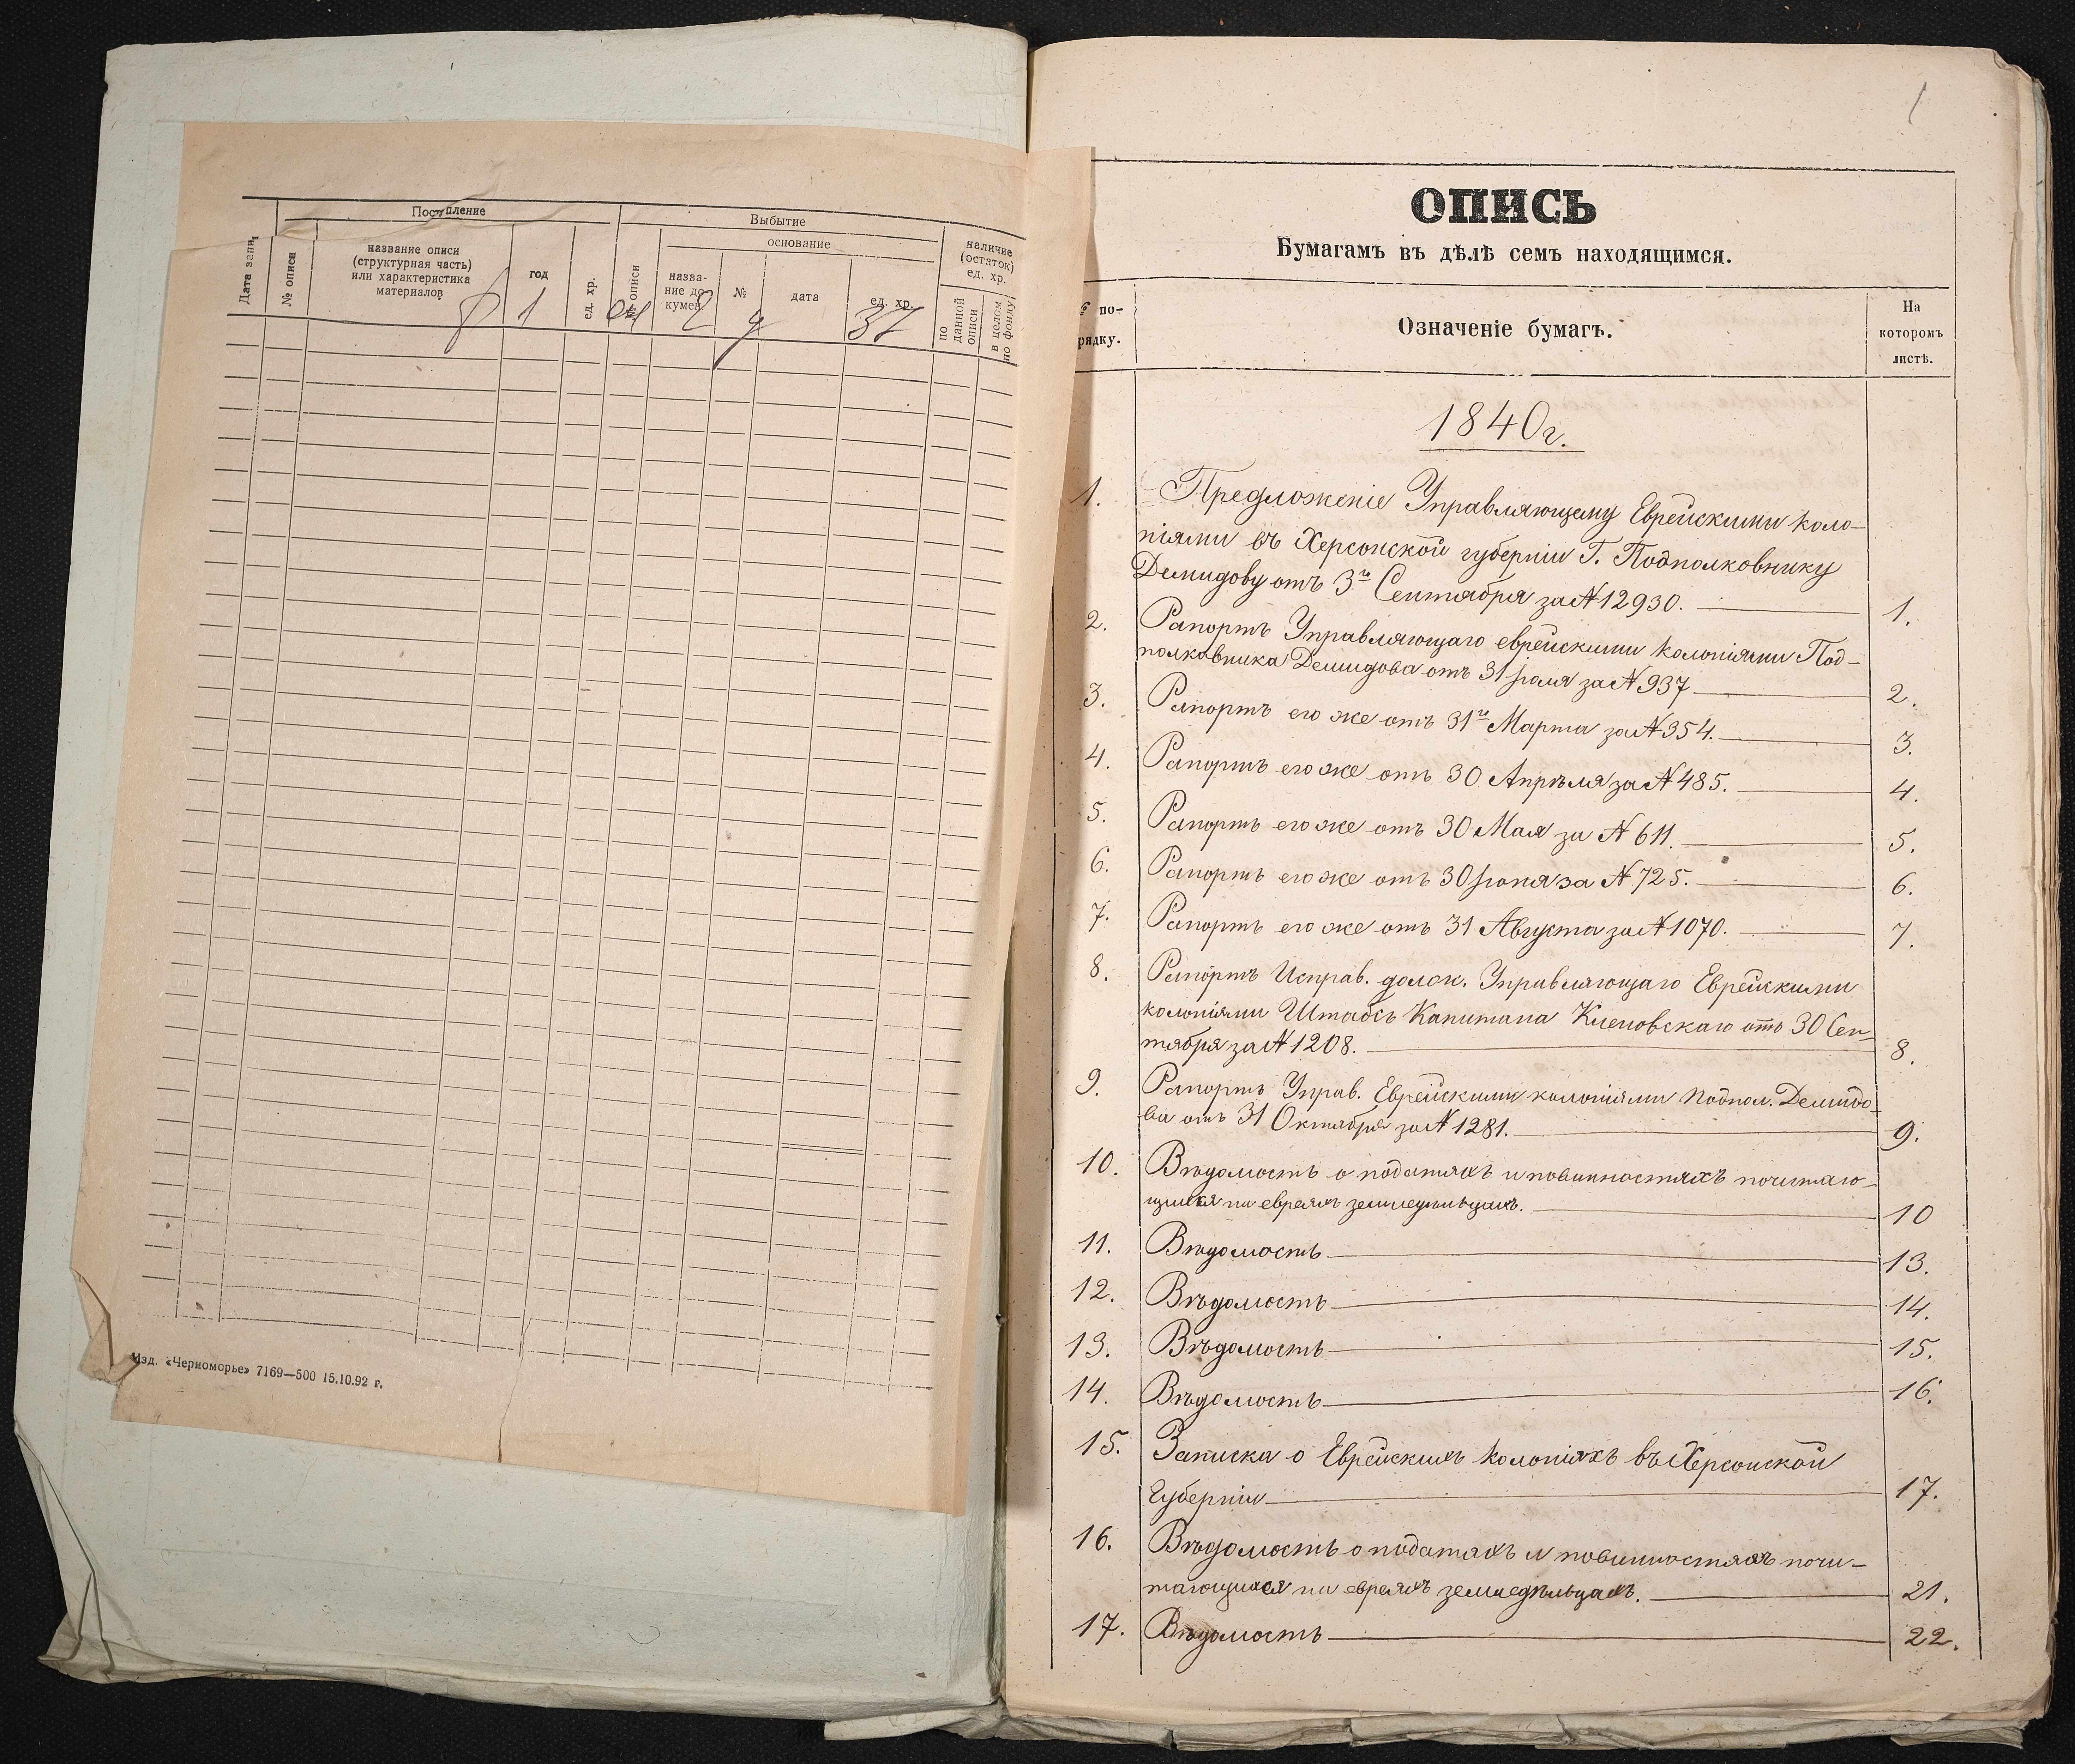 Поступление
Выбытие
Дата запи
№ описи
название описи
(структурная часть)
или характеристика
материалов
год
ед. хр.
№ описи
основание
назва-
ние до-
кумен.
№
дата
ед. хр.
наличие
(остаток)
ед. хр.
по
данной
описи
в целом
по фонду
ф 1 оп 2 д 37
Изд. «Черноморье» 7169—500 15.10.92 г.
1
ОПИСЬ
Бумагамъ въ дѣлѣ семъ находящимся.
№ по-
рядку.
Означеніе бумагъ.
На
которомъ
листѣ.
1840 г.
1. Предложеніе Управляющему Еврейскими коло-
ніями въ Херсонской губерніи Г. Подполковнику
Демидову отъ 3го Сентября за № 12930. 1.
2. Рапортъ Управляющаго еврейскими колоніями Под-
полковника Демидова отъ 31 Іюля за № 937 2.
3. Рапортъ его же отъ 31го Марта за № 354. 3.
4. Рапортъ его же отъ 30 Апрѣля за № 485. 4.
5. Рапортъ его же отъ 30 Мая за № 611. 5.
6. Рапортъ его же отъ 30 Іюня за № 725. 6.
7. Рапортъ его же отъ 31 Августа за № 1070. 7.
8. Рапортъ Исправ. должн. Управляющаго Еврейскими
колоніями Штабсъ Капитана Клеповскаго отъ 30 Сен-
тября за № 1208. 8.
9. Рапортъ Управ. Еврейскими колоніями Подпол. Демидо-
ва отъ 31 Октября за № 1281. 9.
10. Вѣдомость о податяхъ и повинностяхъ почитаю-
щихся на евреяхъ земледѣльцахъ. 10
11. Вѣдомость 13.
12. Вѣдомость 14.
13. Вѣдомость 15.
14. Вѣдомость 16.
15. Записка о Еврейскихъ колоніяхъ въ Херсонской
Губерніи 17.
16. Вѣдомость о податяхъ и повинностяхъ почи-
тающихся на евреяхъ земледѣльцахъ. 21.
17. Вѣдомость 22.